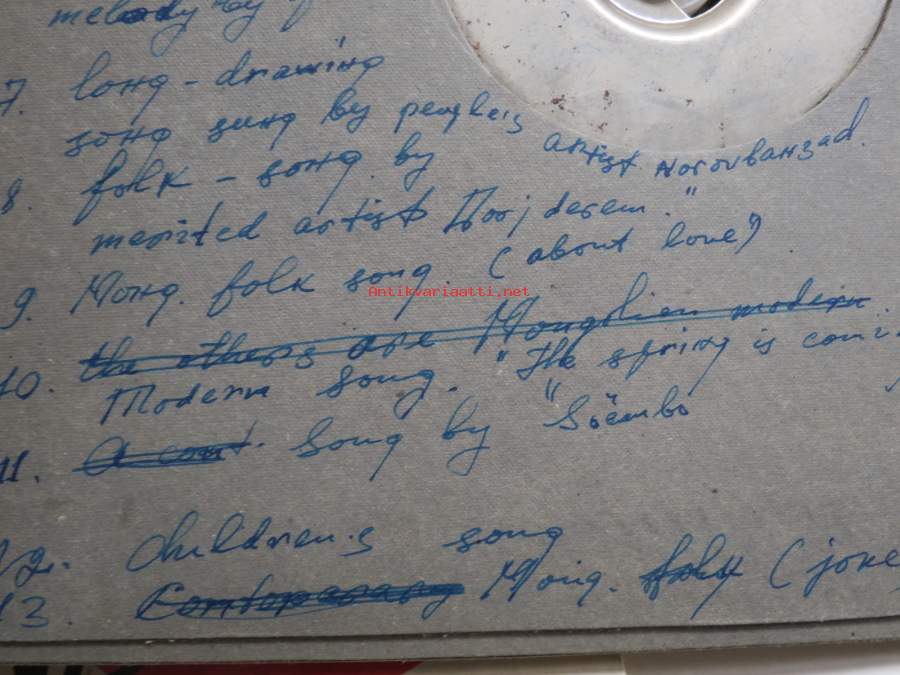 melody by
7. long-drawing
song sung by people's artist Norovbanzad.
8. folk-song by
merited artist Dorjderem."
9. Mong. folk song (about love")
Antikvariaatti.net
10. the others are Mongolien modern
Modern song. "The spring is comi
11. A cont. song by "Soëmbo
12. children's song
13. Contoporary Mong. folk (joke